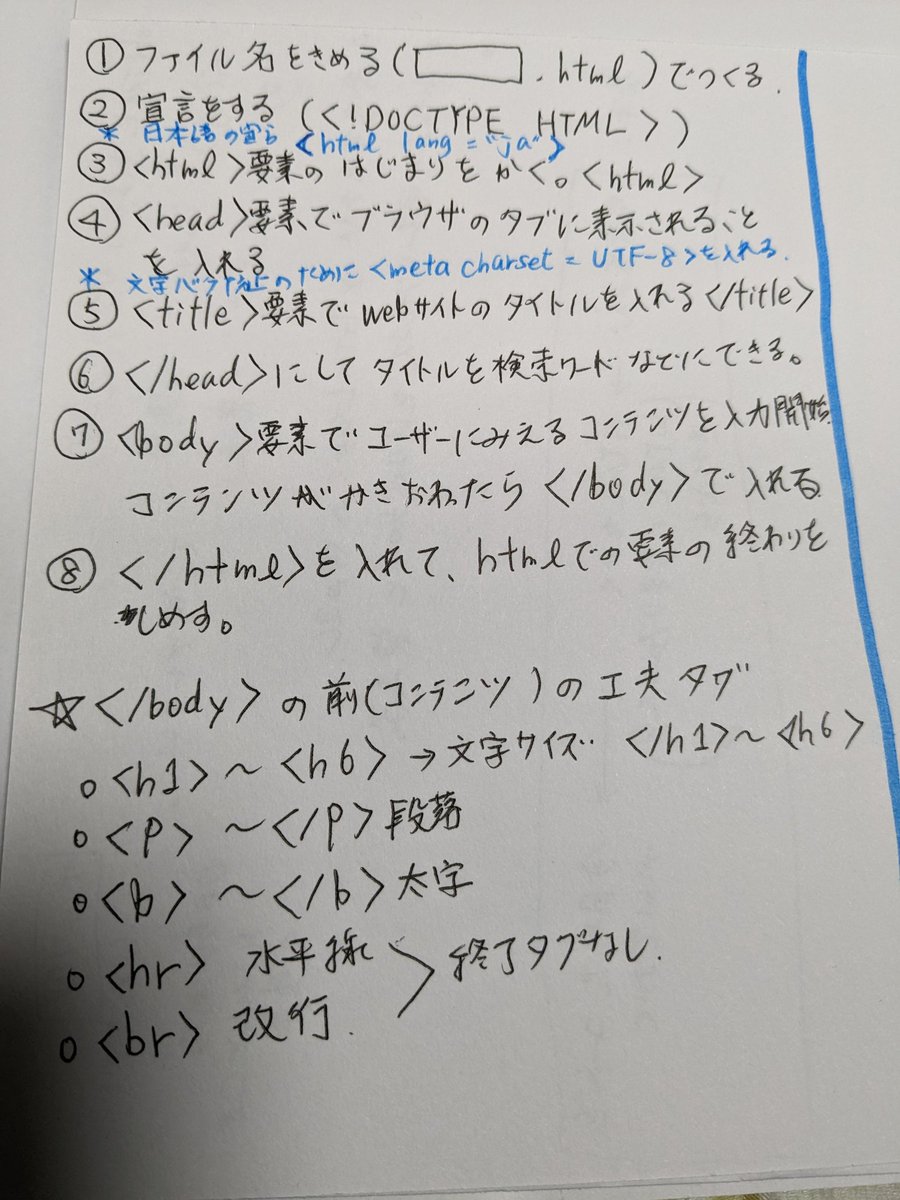 ① ファイル名をきめる( .html)でつくる
② 宣言をする (<!DOCTYPE HTML>)
* 日本語の宣言 <html lang="ja">
③ <html>要素のはじまりをかく。<html>
④ <head>要素でブラウザのタブに表示されること
を入れる
* 文字バケ防止のために <meta charset = UTF-8>を入れる.
⑤ <title>要素でwebサイトのタイトルを入れる</title>
⑥ </head>にしてタイトルを検索ワードなどにできる。
⑦ <body>要素でユーザーにみえるコンテンツを入力開始.
コンテンツがかきおわったら </body>で入れる
⑧ </html>を入れて、htmlでの要素の終わりを
しめす。
☆</body>の前(コンテンツ)の工夫タグ
○<h1>〜<h6>→文字サイズ </h1>〜<h6>
○<p> 〜</p>段落
○<b> 〜</b>太字
○<hr> 水平線 > 終了タブなし.
○<br> 改行.